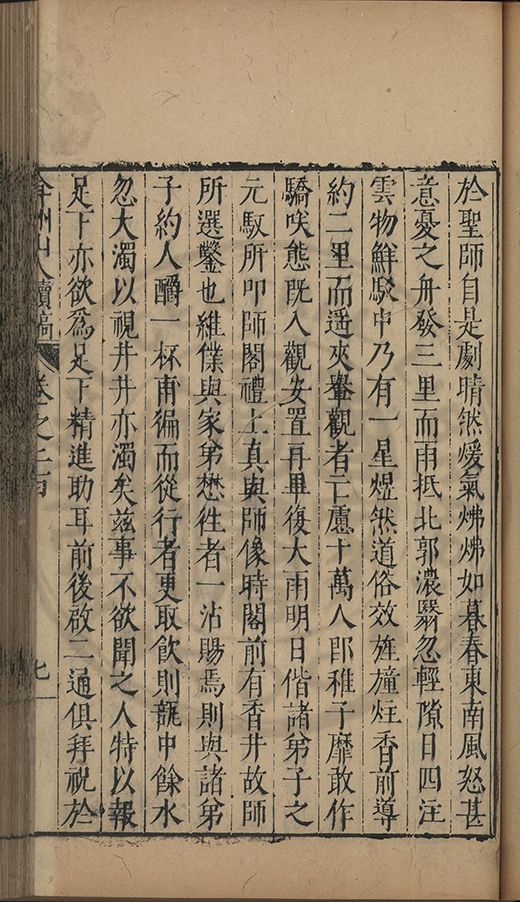 於聖師自是劇晴然煖氣怫怫如暮春東南風怒甚
意憂之舟發三里而雨抵北郭濃翳忽輕隙日四注
雲物鮮駮中乃有一星熠然道俗效旌幢炷香前導
約二里而遥夾轝觀者亡慮十萬人即稚子靡敢作
驕咲態既入觀安置再畢復大雨明日偕諸弟子之
元馭所叩師閣禮上真與師像時閣前有香井故師
所選鑿也維僕與家弟懋徃者一沾賜焉則與諸弟
子約人釂一杯甫徧而從行者更取飲則甁中餘水
忽大濁以視井井亦濁矣兹事不欲聞之人特以報
足下亦欲爲足下精進助耳前後啟二通俱拜祝於
弇州山人續稿 卷之二百 七